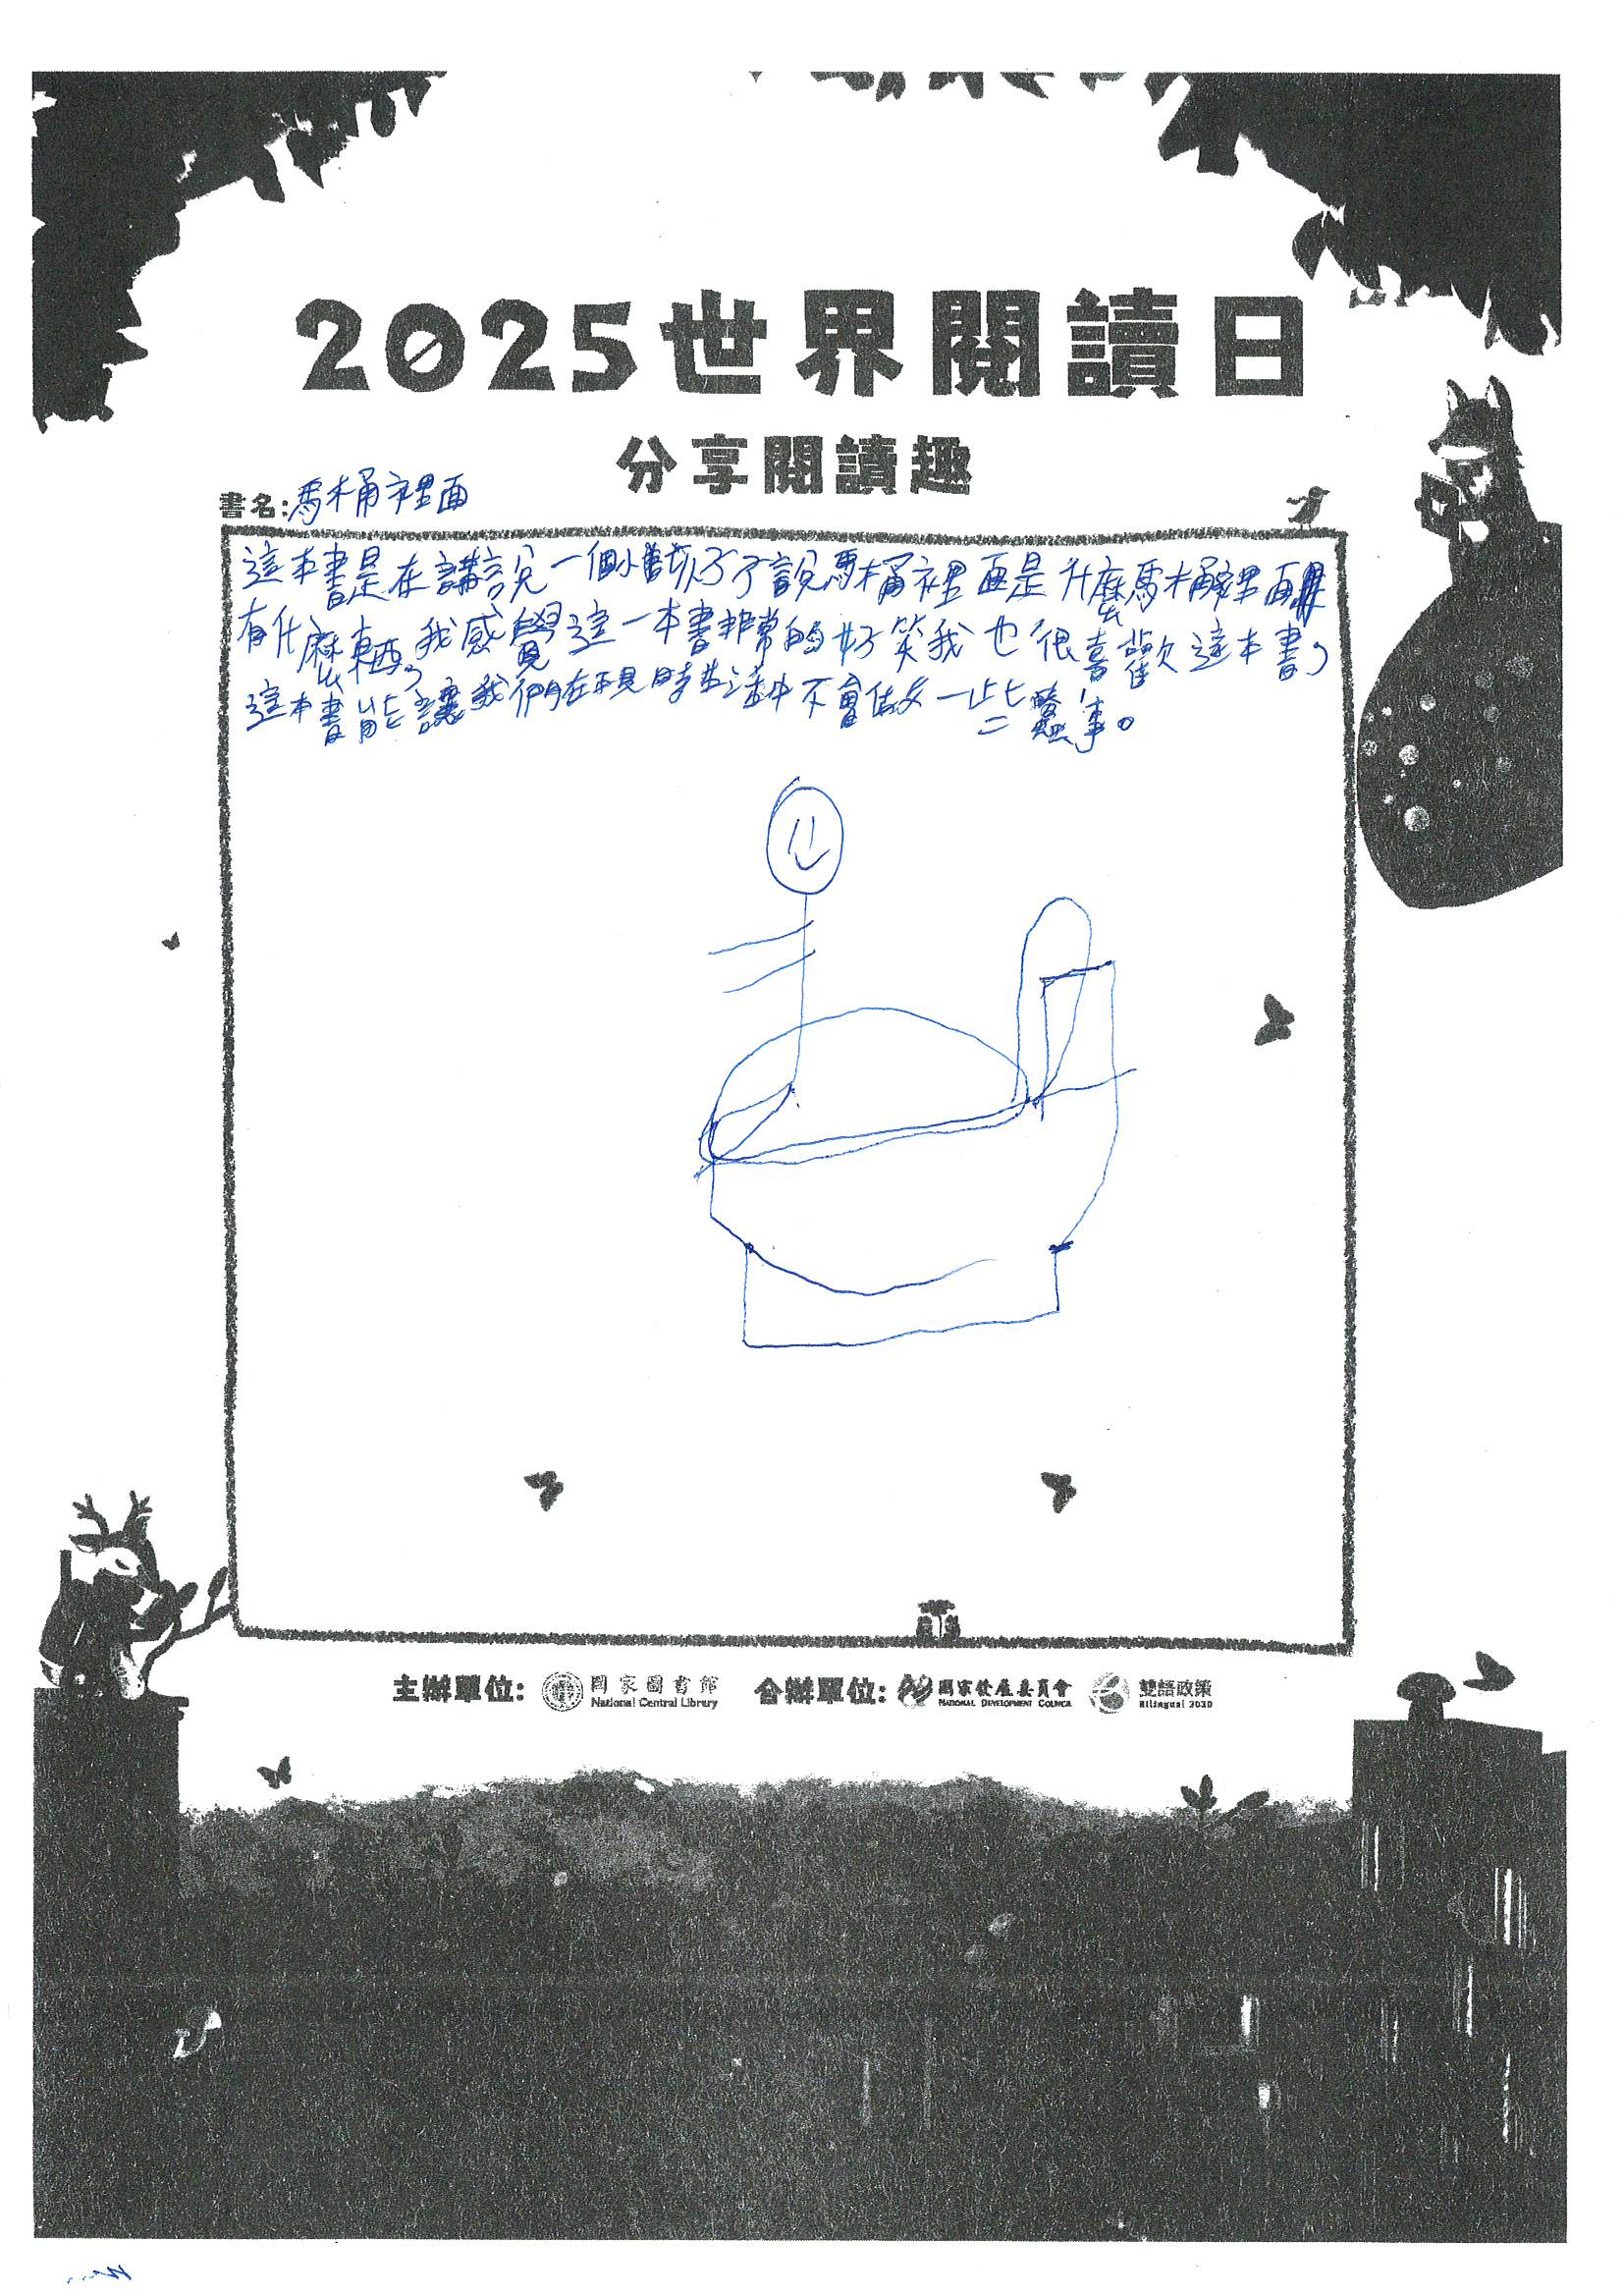 2025世界閱讀日
分享閱讀趣
書名:馬桶裡面
這本書是在講說一個小說馬桶裡面是什麼馬桶裡面
有什麼東西,我感覺這一本書非常的好笑我也很喜歡這本書,
這本書能讓我們在現時生活中不會做一些蠢事。
主辦單位: 國家圖書館 National Central Library 合辦單位: 國家發展委員會 NATIONAL DEVELOPMENT COUNCIL 雙語政策 Bilingual 2030